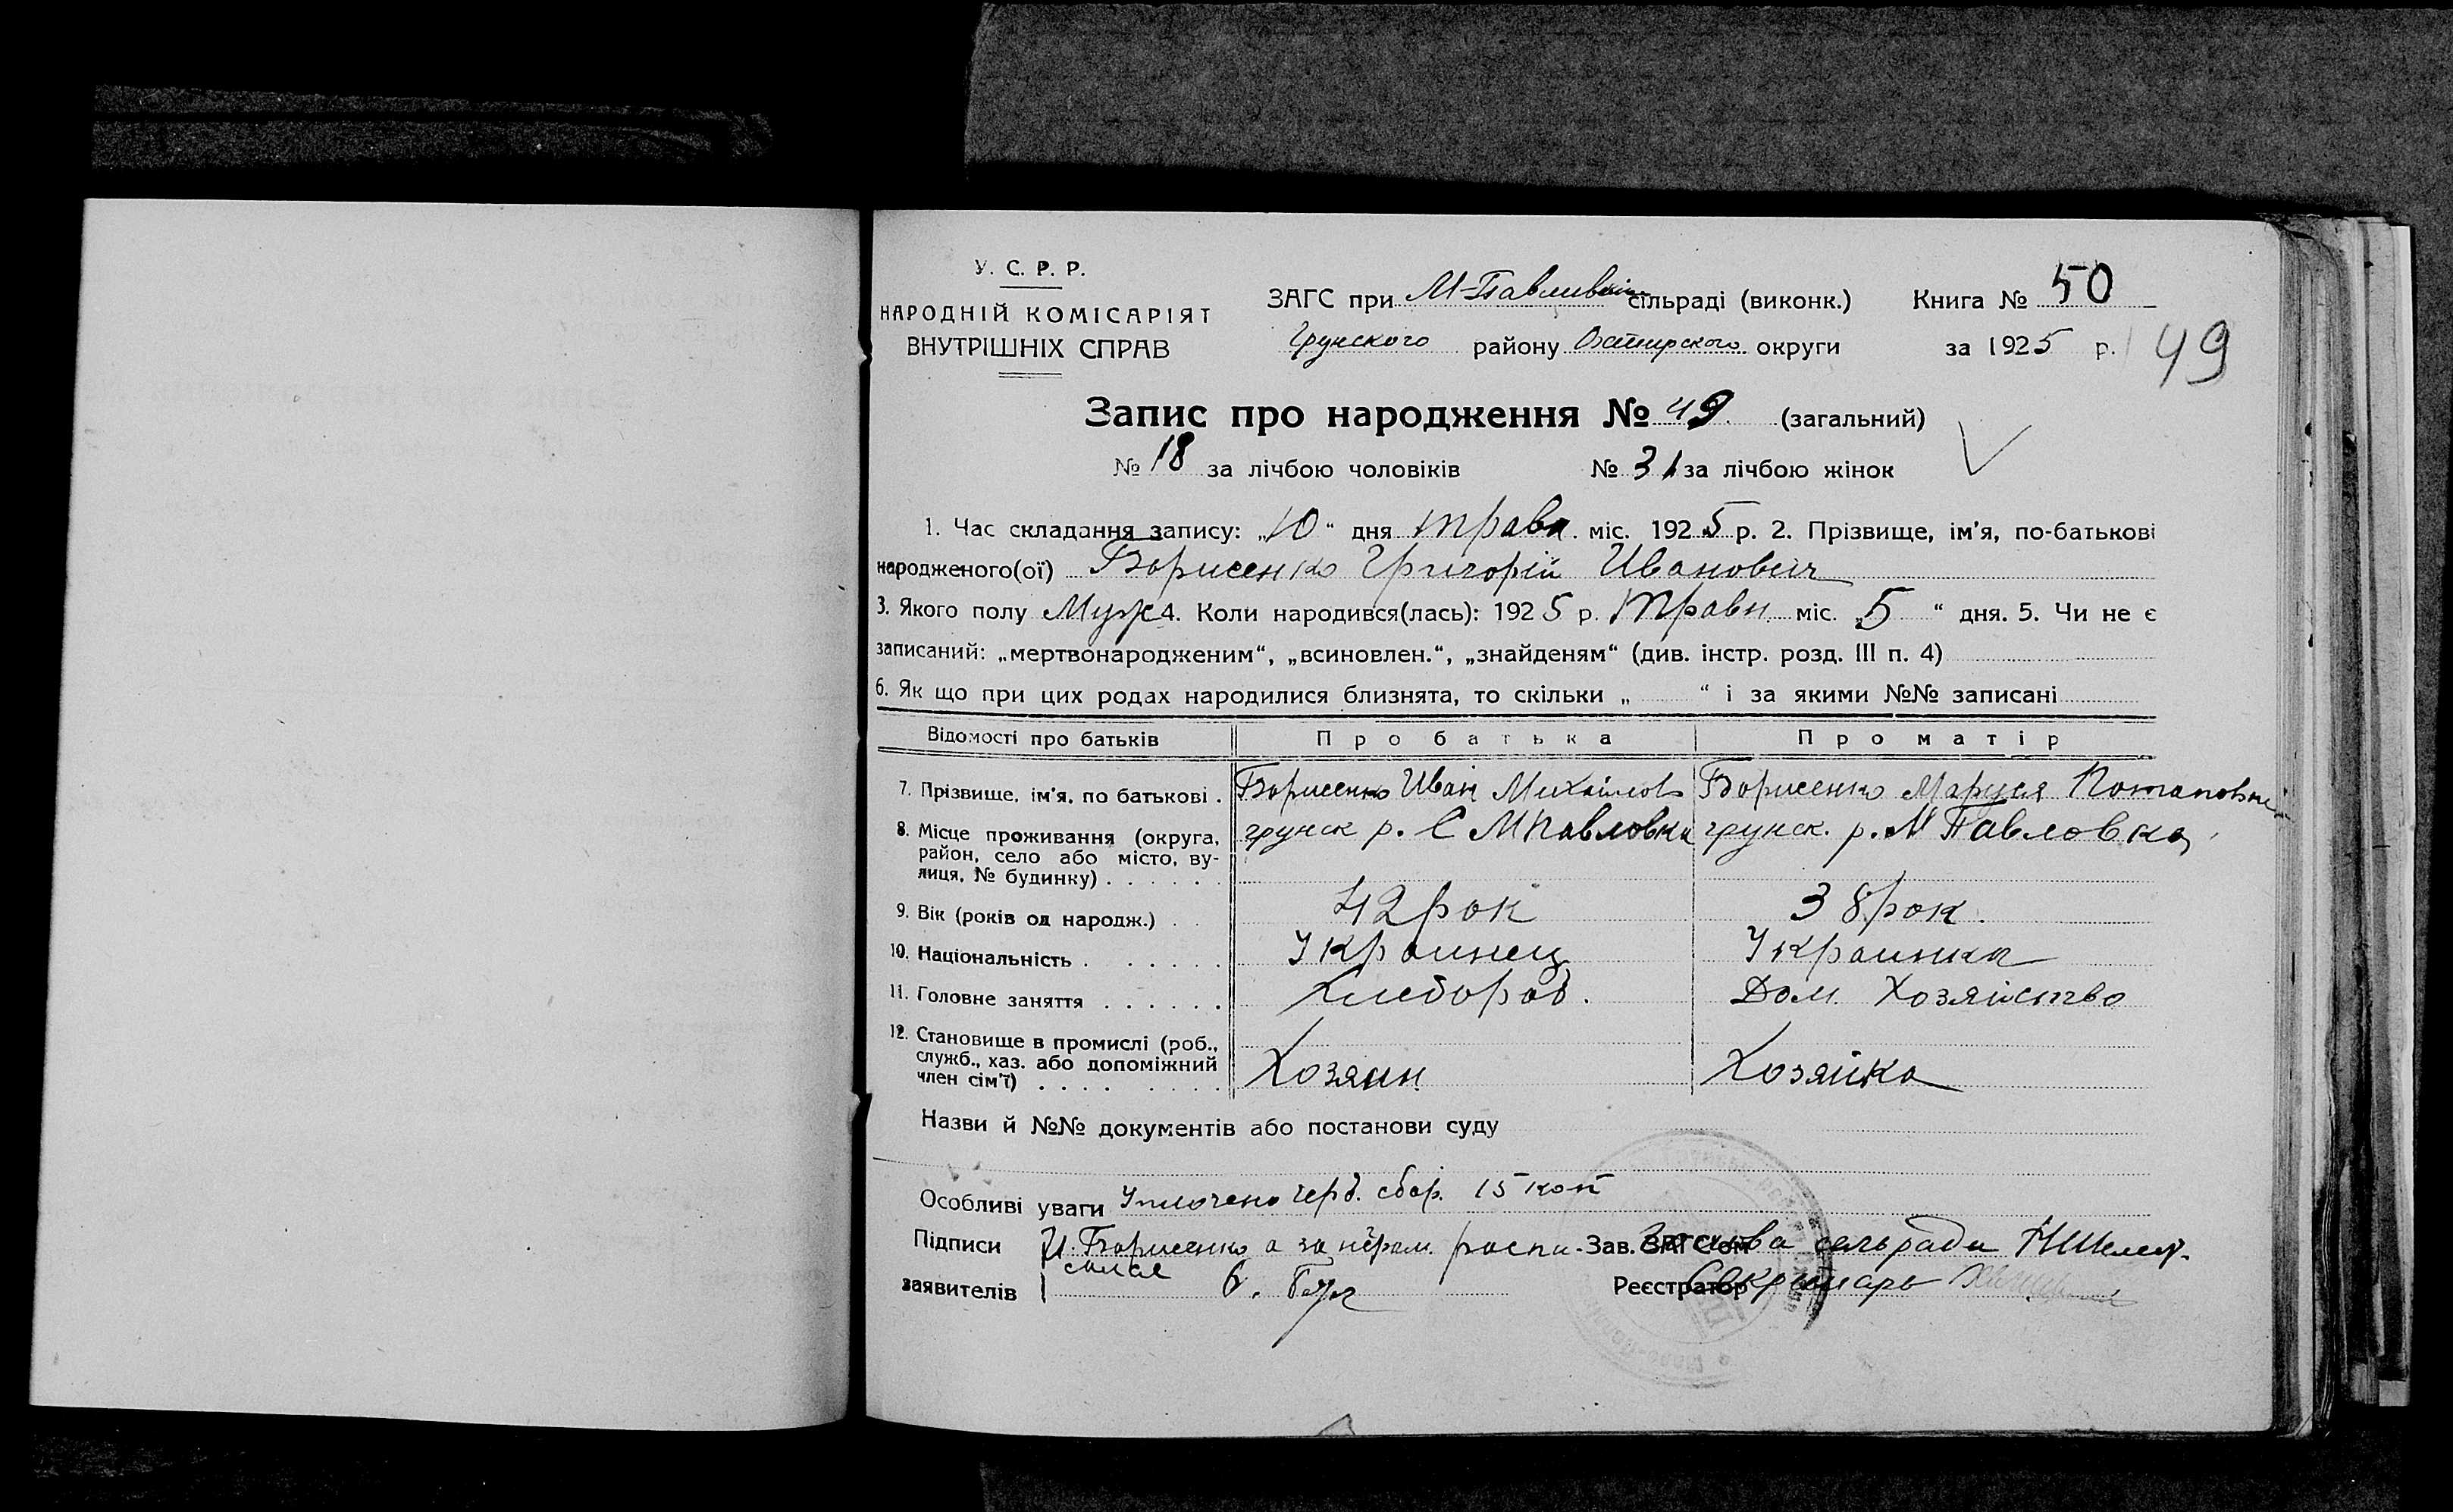 У. С. Р. Р.
НАРОДНІЙ КОМІСАРІЯТ
ВНУТРІШНІХ СПРАВ
ЗАГС при М-Павливські сільраді (виконк.) Книга № 50
Грунского району Охтирского округи за 1925 р. 49
Запис про народження № 49 (загальний)
№ 18 за лічбою чоловіків № 31 за лічбою жінок
1. Час складання запису: „10" дня травн міс. 1925 р. 2. Прізвище, ім'я, по-батькові
народженого(ої) Борисенко Григорій Иванович
3. Якого полу Муж 4. Коли народився(лась): 1925 р. Травн міс. „5 " дня. 5. Чи не є
записаний: „мертвонародженим", „всиновлен.", „знайденям" (див. інстр. розд. III п. 4)
6. Як що при цих родах народилися близнята, то скільки „ " і за якими №№ записані
Відомості про батьків Про батька Про матір
7. Прізвище, ім'я, по батькові . Борисенко Иван Михайлов Борисенко Маруся Потаповна
8. Місце проживання (округа, грунск р. С МПавловка грунск. р. М Павловка
район, село або місто, ву-
лиця, № будинку) . . . . . .
9. Вік (років од народж.) . . 42 рок 38 рок.
10. Національність . . . . . . Украинец Украинка
11. Головне заняття . . . . . . Хлебороб. Дом. Хозяйство
12. Становище в промислі (роб.,
служб., хаз. або допоміжний Хозяин Хозяйка
член сім'ї) . . . . . . . .
Назви й №№ документів або постанови суду
Особливі уваги Уплочено герб. сбор. 15 коп
Підписи И. Борисенко а за неграм. роспи- Зав. ЗАГС'ом сельради
сался
заявителів Реєстратор Секретарь